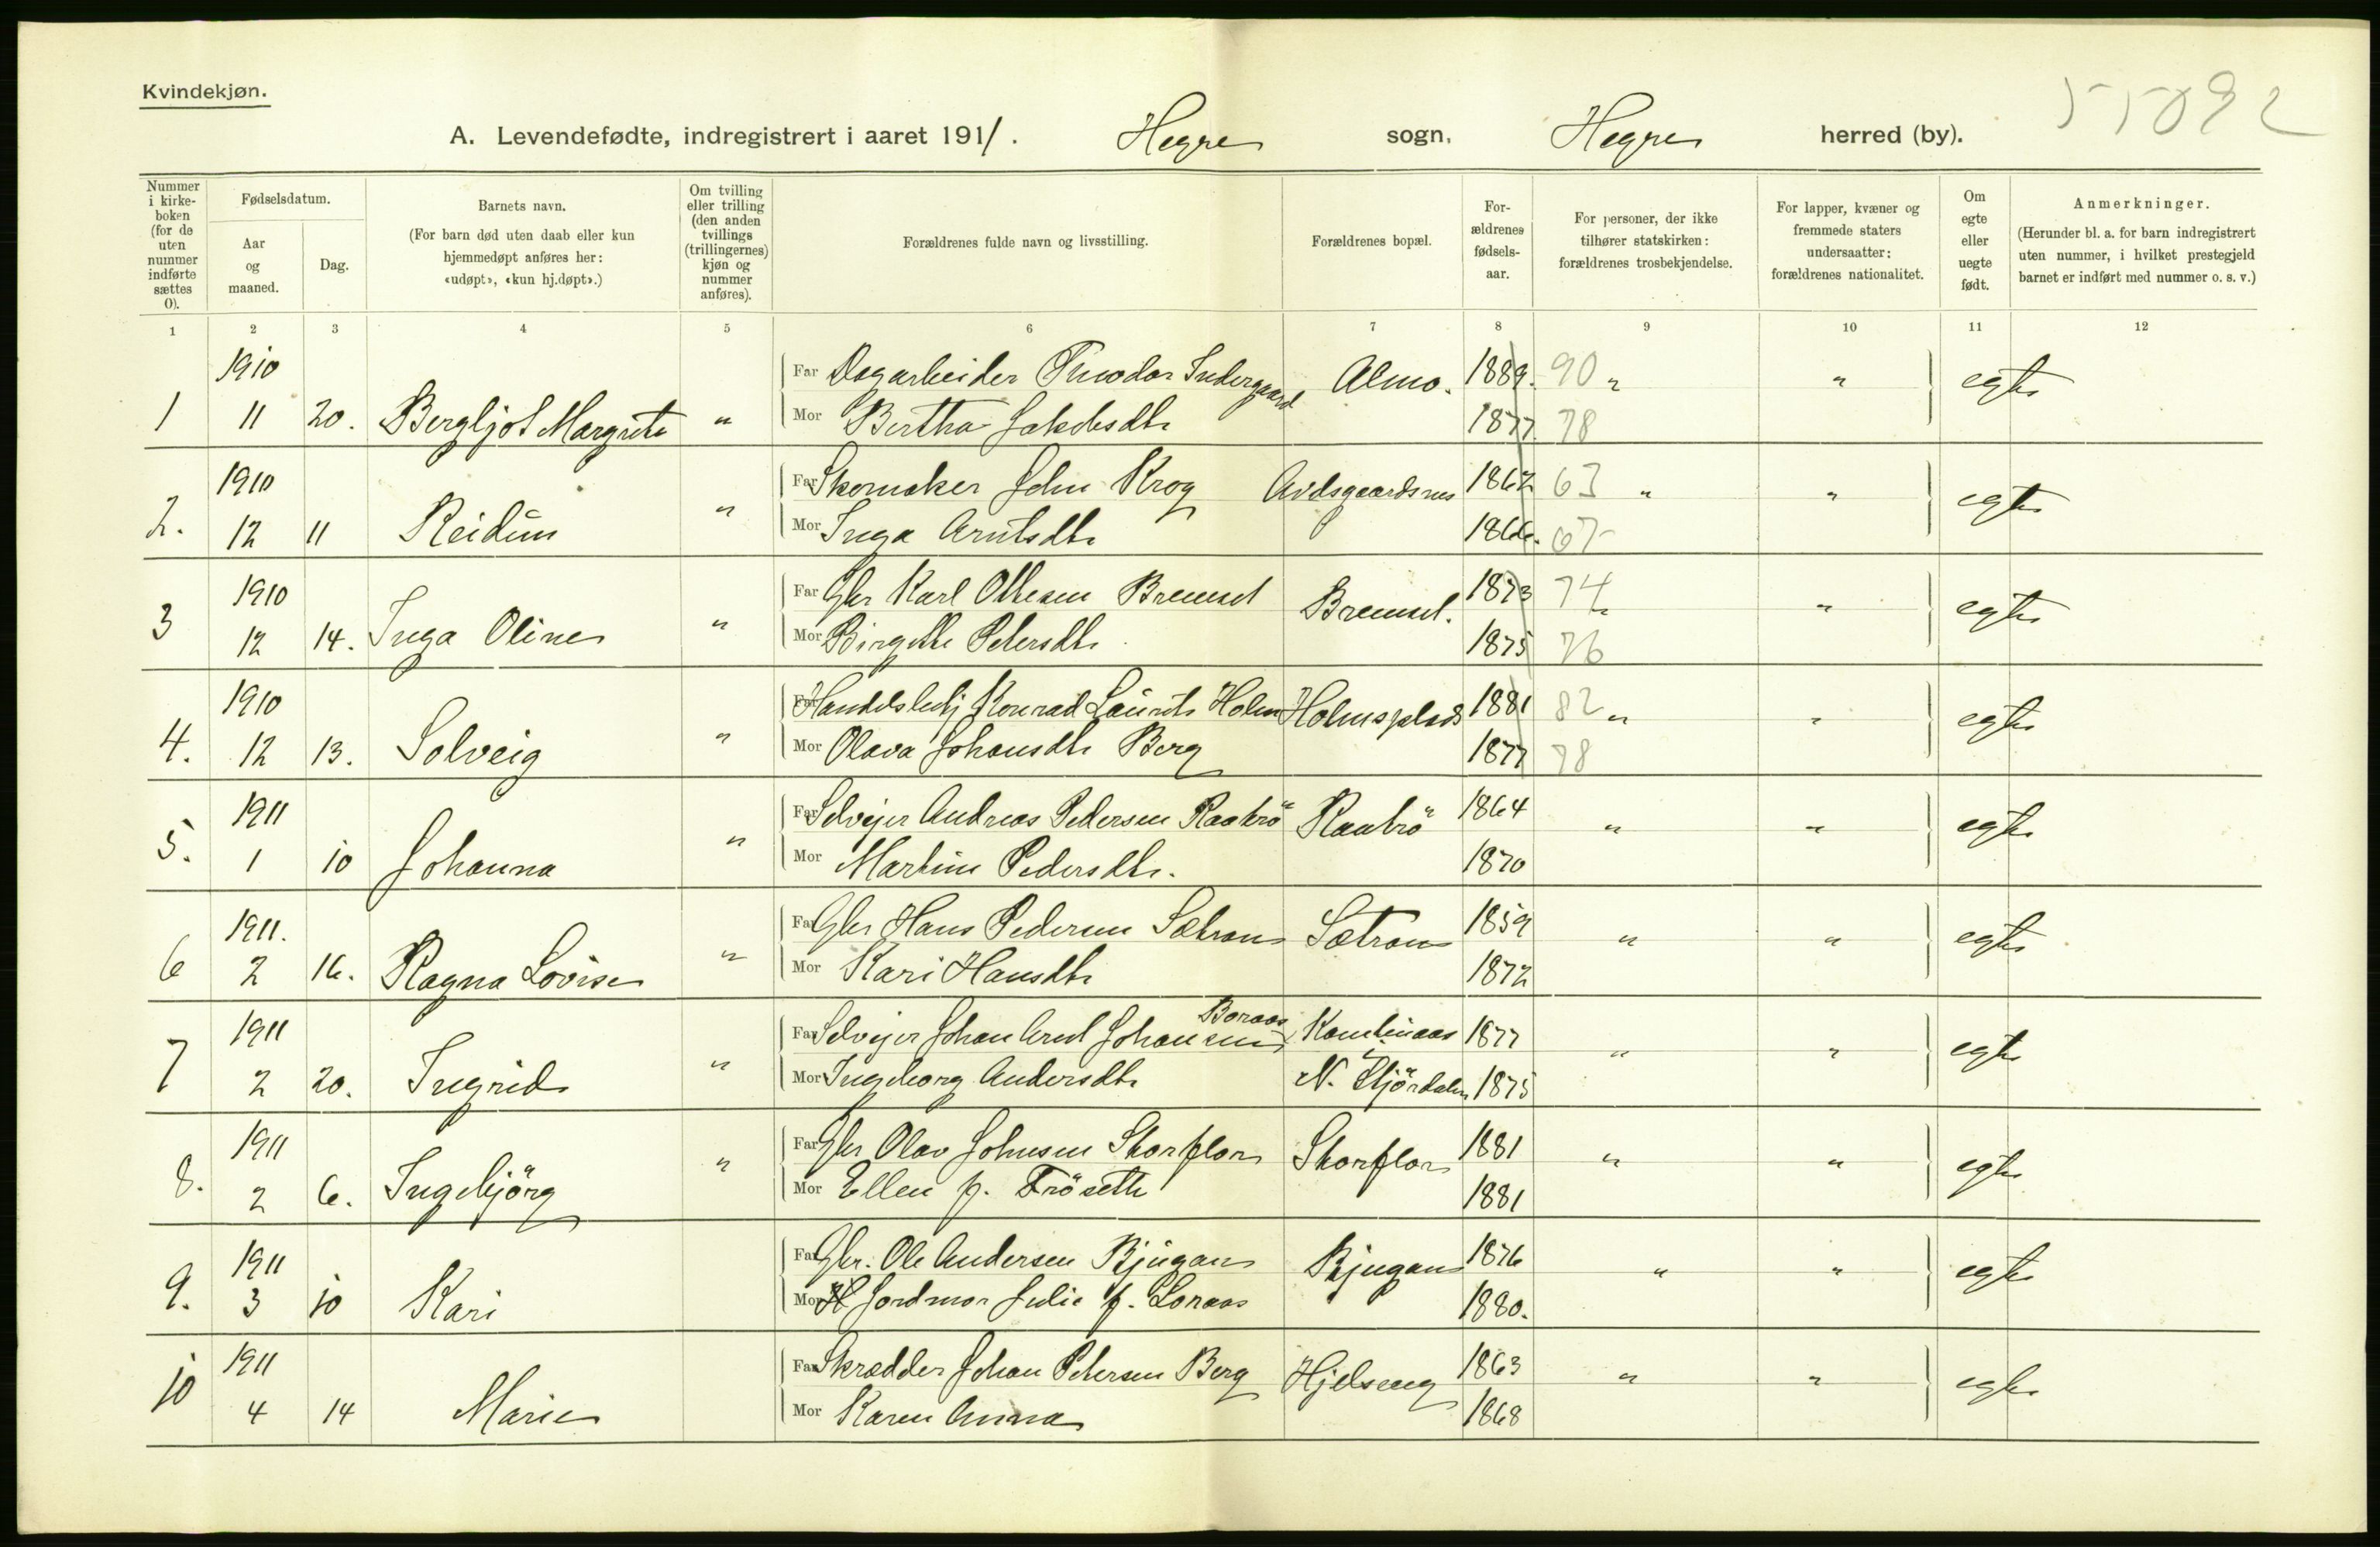 Kvindekjøn.
55092
A. Levendefødte, indregistrert i aaret 1911. Hegre sogn, Hegre herred (by).
Nummer i kirke-boken (for de uten nummer indførte sættes 0).
Fødselsdatum.
Aar og maaned.
Dag.
Barnets navn.
(For barn død uten daab eller kun hjemmedøpt anføres her: «udøpt», «kun hj.døpt».)
Om tvilling eller trilling (den anden tvillings (trillingernes) kjøn og nummer anføres).
Forældrenes fulde navn og livsstilling.
Forældrenes bopæl.
For-ældrenes fødsels-aar.
For personer, der ikke tilhører statskirken: forældrenes trosbekjendelse.
For lapper, kvæner og fremmede staters undersaatter: forældrenes nationalitet.
Om egte eller uegte født.
Anmerkninger.
(Herunder bl. a. for barn indregistrert uten nummer, i hvilket prestegjeld barnet er indført med nummer o. s. v.)
1 2 3 4 5 6 7 8 9 10 11 12
1910 Far Dagarbeider Theodor Indergaard Almo. 1889. 90 " " egte
1 11 20. Bergljot Margrete " Mor Bertha Jakobsdtr 1877. 78
1910 Far Skomaker John Krog Avdsgaardsnes 1862 63 " " egte
2. 12 11 Reidun " Mor Inga Arntsdtr 1866. 67
1910 Far Gbr Karl Ottesen Bremset Bremset. 1873 74 " " egte
3 12 14. Inga Oline " Mor Birgitte Petersdtr 1875 76
1910 Far Handelsbetj Konrad Laurits Holm Holmsplads 1881 82 " " egte
4. 12 13. Solveig " Mor Olava Johansdtr Berg 1877 78
1911 Far Selvejer Andreas Pedersen Raabrö Raabrö 1864 " " egte
5. 1 10 Johanna " Mor Martine Pedersdtr. 1870
1911. Far Gbr Hans Pedersen Sætran Sætran 1859 " " egte
6 2 16. Ragna Lovise " Mor Kari Hansdtr 1872
1911 Far Selvejer Johan Arnt Johansen Boraas 1877 " " egte
7 2 20. Ingrid " Mor Ingeborg Andersdtr N. Stjördalen 1875
1911 Far Gbr Olav Johnsen Storflor Storflor 1881 " " egte
8. 2 6. Ingebjörg " Mor Ellen f. Fröseth 1881
1911 Far Gbr. Ole Andersen Bjugan Bjugan 1876 " " egte
9. 3 10 Kari Mor Jordmor Julie f. Loraas 1880.
1911 Far Skrædder Johan Petersen Berg Hjelseng 1863 " " egte
10 4 14 Marie Mor Karen Anna 1868